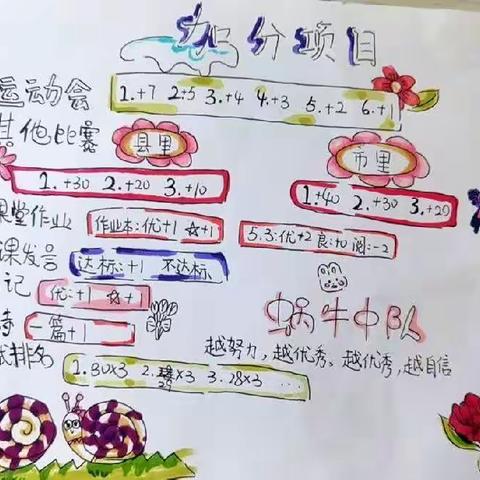 加分项目
运动会 1.+7 2+5 3.+4 4.+3 5.+2 6.+1
其他比赛 县里 市里
1.+30 2.+20 3.+10 1+40 2.+30 3.+20
课堂作业 作业本:优+1 ☆+1 5.3:优+2 良:+0 阅:-2
课发言 达标:+1 不达标、
记 优:+1 ☆+1
诗 一篇+1
蜗牛中队
越努力,越优秀、越优秀,越自信
排名 1.30×3 2.29×3 3.28×3 ...